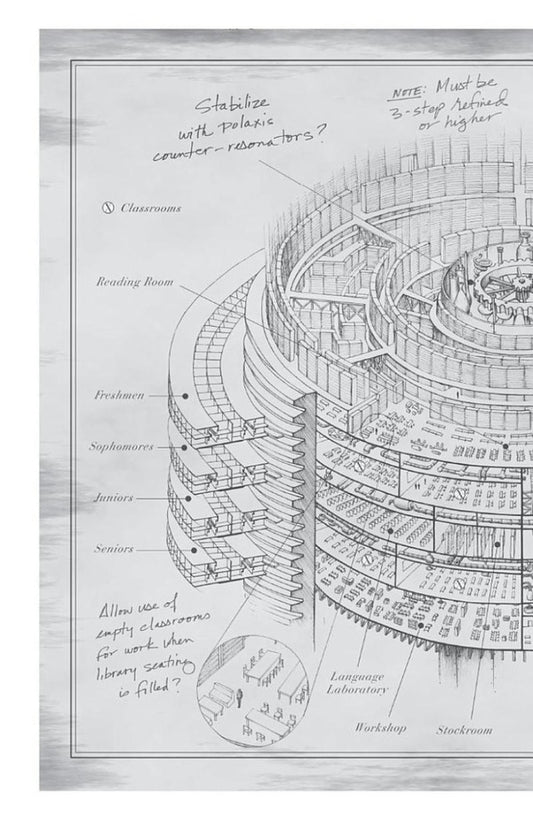 Stabilize
with polaxis
counter-resonators?
NOTE: Must be
3-step refined
or higher
Classrooms
Reading Room
Freshmen
Sophomores
Juniors
Seniors
Allow use of
empty classrooms
for work when
library seating
is filled?
Language
Laboratory
Workshop
Stockroom